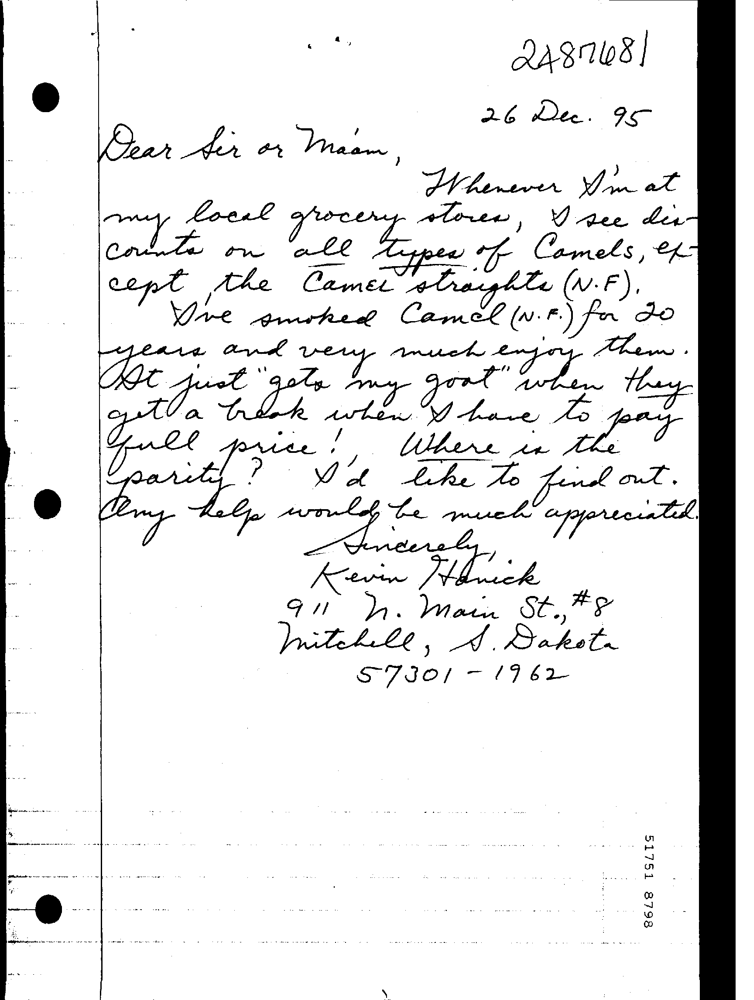 2487681
26 Dec. 95
Dear Sir or Ma'am,
Whenever I'm at
my local grocery stores, I see dis-
counts on all types of Camels, ex-
cept the Camel straights (N.F).
I've smoked Camel (N.F.) for 20
years and very much enjoy them.
It just "gets my goat" when they
get a break when I have to pay
full price! Where is the
parity? I'd like to find out.
Any help would be much appreciated.
Sincerely,
Kevin Hanick
911 N. Main St., #8
Mitchell, S. Dakota
57301-1962
51751 8798